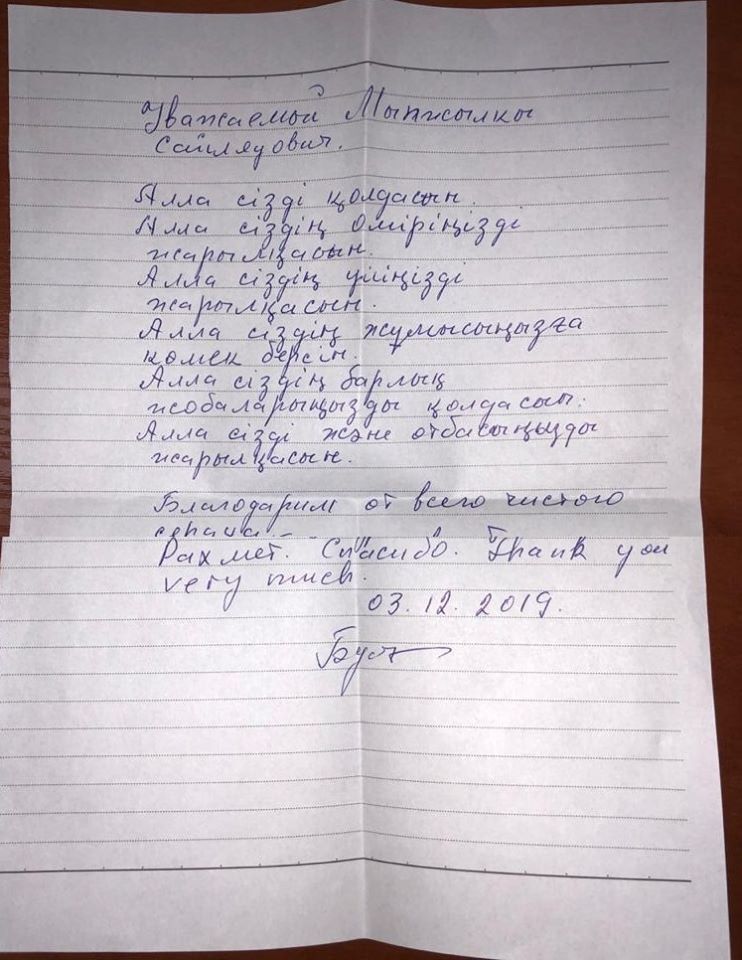 Уважаемый Мынжылкы
Сайлядович.
Алла сізді қолдасын.
Алла сіздің өміріңізді
жарылқасын.
Алла сіздің үйіңізді
жарылқасын.
Алла сіздің жұмысыңызға
көмек берсін.
Алла сіздің барлық
жобаларыңызды қолдасын.
Алла сізді және отбасыңызды
жарылқасын.
Благодарим от всего чистого
Рахмет. Спасибо. Thank you
very much.
03.12.2019.